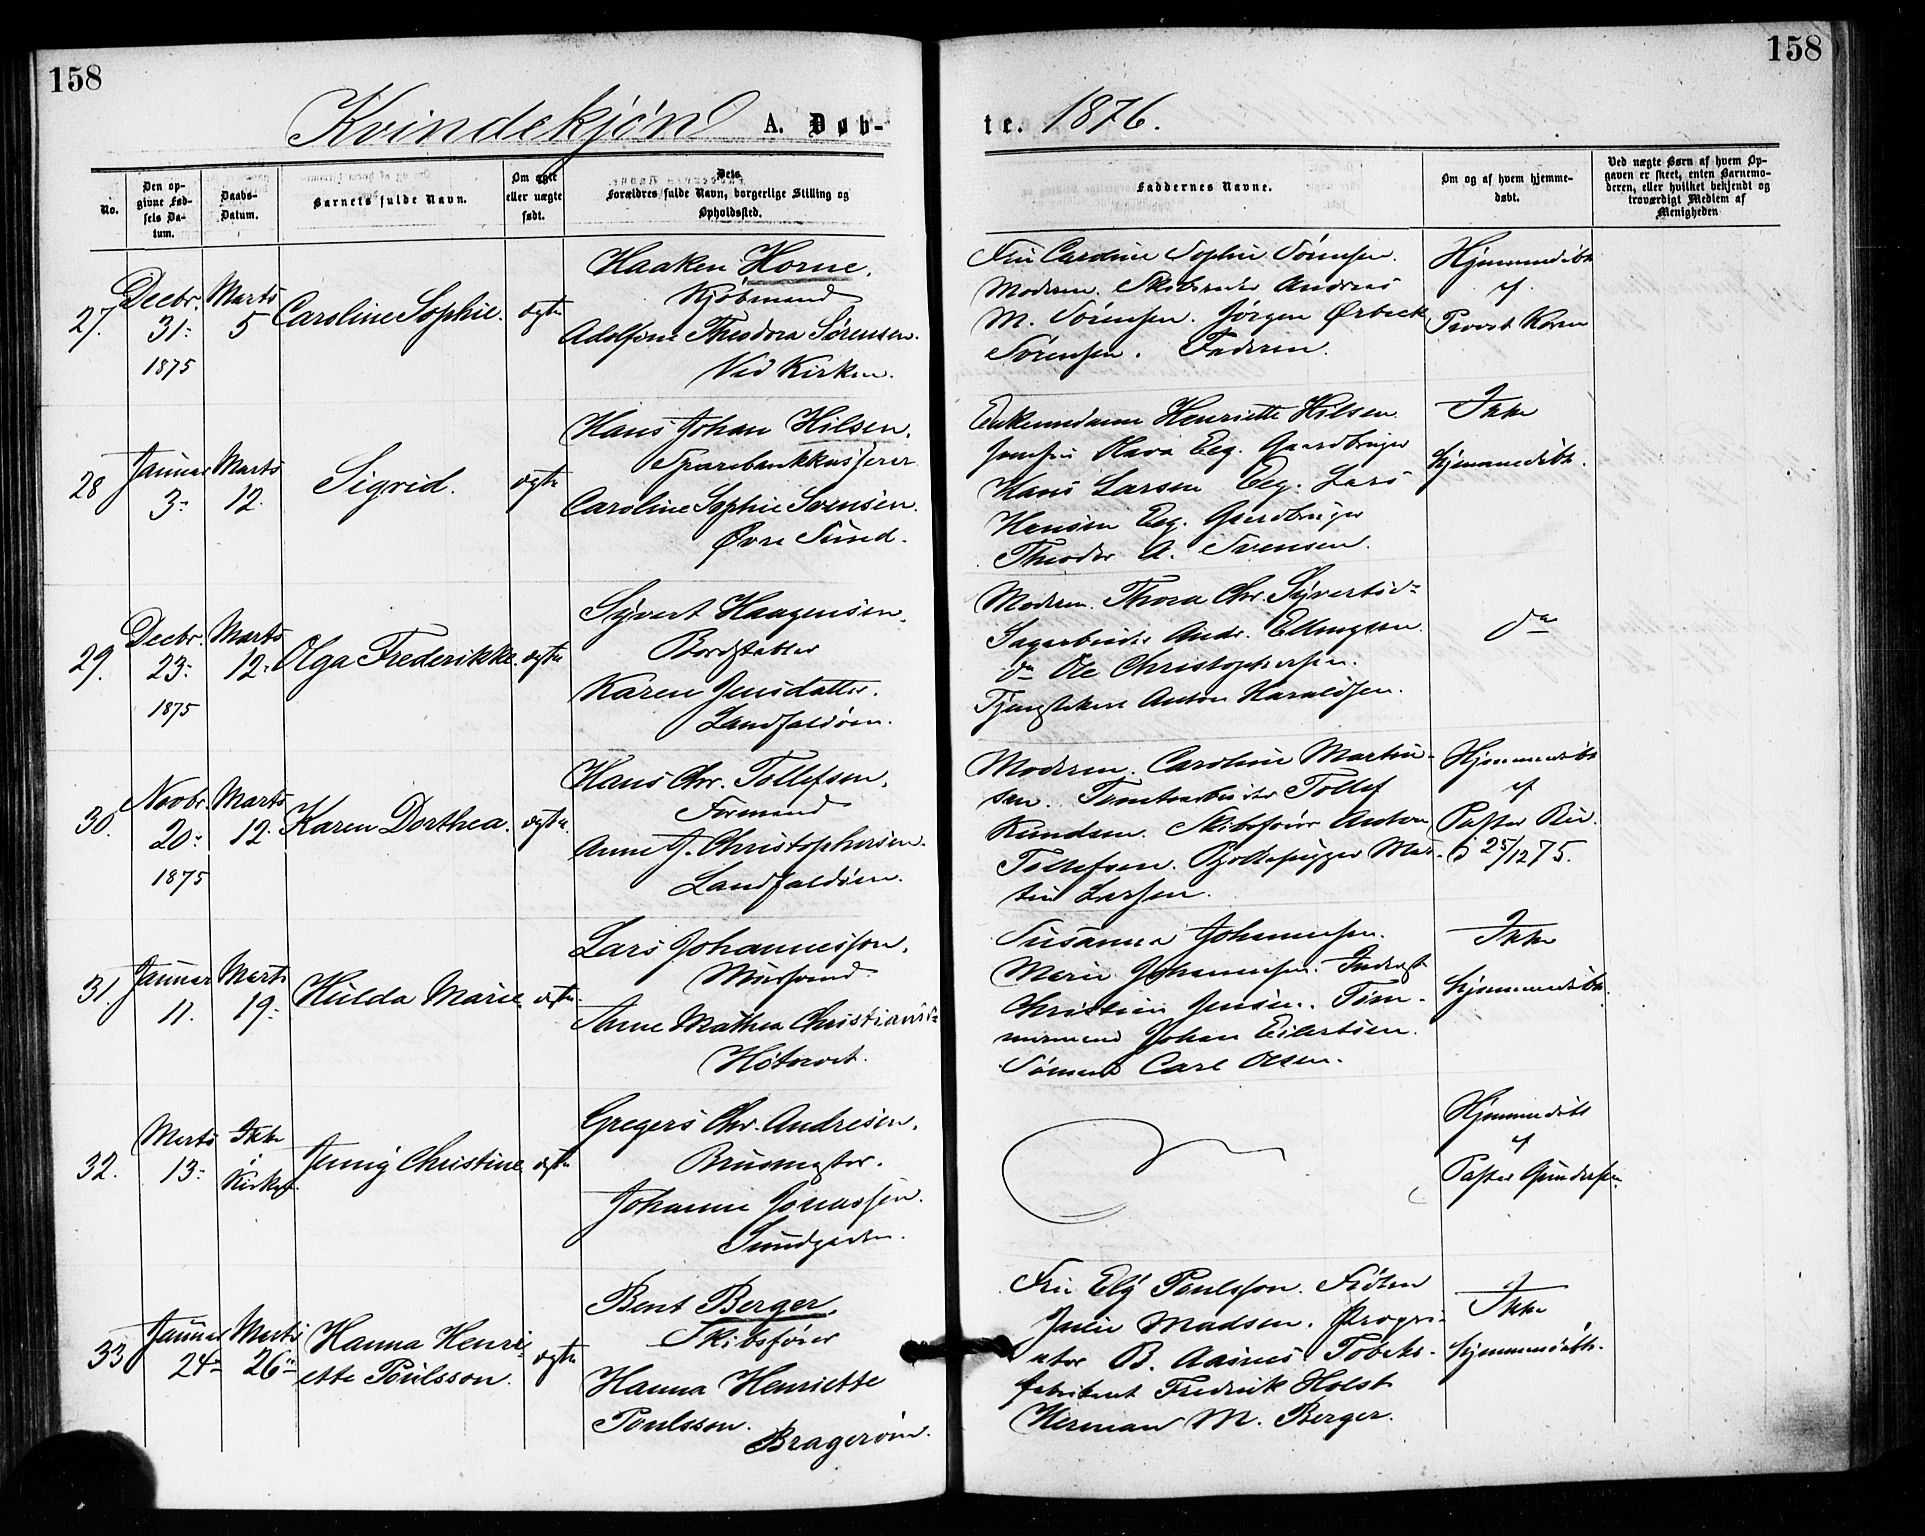 158
158
Kvindekjøn A. Døb-
te. 1876.
No.
Den op-
givne Fød-
sels Da-
tum.
Daabs-
Datum.
Barnets fulde Navn.
Om ægte
eller uægte
født.
Dets
Forældres fulde Navn, borgerlige Stilling og
Opholdssted.
Faddernes Navne.
Om og af hvem hjemme-
døbt.
Ved uægte Børn af hvem Op-
gaven er skeet, enten Barnemo-
deren, eller hvilket bekjendt og
troværdigt Medlem af
Menigheden
27.
Decbr.
31-
1875
Marts
5
Caroline Sophie.
ægte
Haaken Horne.
Kjøbmand
Adolfine Theodora Sørensen.
Ved Kirken.
Fru Caroline Sophie Sørensen.
Moderen. Skibsreder Andreas
M. Sørensen. Jørgen Ørbeck
Sørensen. Faderen.
Hjemmedøbt
af
Provst Koren
28
Januar
3-
Marts
12.
Sigrid.
ægte
Hans Johan Hilsen.
Sparebankkasserer
Caroline Sophie Sørensen.
Øvre Sund.
Enkemadame Henriette Hilsen
Jomfru Mava Eeg. Gaardbruger
Hans Larsen Eeg. Lars
Hansen Eeg. Gaardbruger
Theodor A. Svensen.
Ikke
hjemmedøbt.
29.
Decbr.
23-
1875
Marts
12-
Olga Frederikke.
ægte
Syvert Haagensen.
Bordstabler
Karen Jensdatter.
Landfaldøen.
Moderen. Thora Chr. Syvertsd-
Sagarbeider Andr. Ellingsen.
do Ole Christophersen.
Tjenestekarl Anton Haraldsen.
do
30.
Novbr.
20-
1875
Marts
12.
Karen Dorthea.
ægte.
Hans Chr. Tollefsen.
Formand
Anne J. Christophersen.
Landfaldøen.
Moderen. Caroline Martin-
sen. Tomtearbeider Tollef
Knudsen. Skibsfører Anton
Tollefsen. Boltehugger Mar-
tin Larsen.
Hjemmedøbt
af
Pastor
25/12 75.
31.
Januar
11.
Marts
19-
Hulda Marie
ægte.
Lars Johannesson.
Muusmand
Anne Mathea Christiansd-
Høtorvet.
Susanna Johannesen.
Marie Johannesen.
Christian Jensen. Tøm-
mermand Johan Eilertsen.
Sømand Carl Olsen.
Ikke
hjemmedøbt.
32.
Marts
13-
Ikke
i
Kirken.
Jenny Christine
ægte
Gregers Chr. Andresen.
Brusmester.
Johanne Jonassen.
Sundgaden.
Hjemmedøbt
af
Pastor Gundersen
33
Januar
24-
Marts
26-
Hanna Henri-
ette Poulsson.
ægte
Bent Berger.
Skibsfører
Hanna Henriette
Poulsson.
Bragerøen.
Fru Elg Poulsson. Frøken
Julie Madsen. Propri-
etær B. Aasnes. Tobaks-
fabrikant Fredrik Holst
Herman M. Berger.
Ikke
hjemmedøbt.